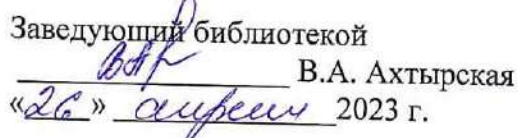 Заведующий библиотекой
В.А. Ахтырская
«26» апреля 2023 г.